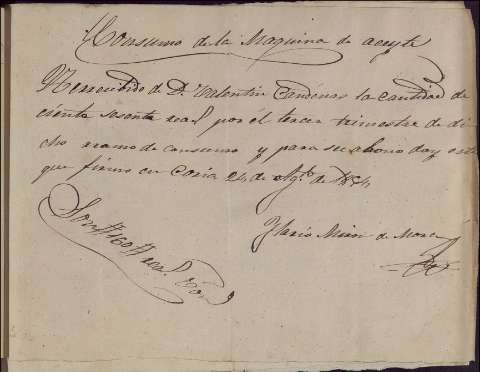 Consumo de la Maquina de aceyte
He recibido de Dn. Valentin Cardenas la cantidad de
ciento sesenta reals. por el tercer trimestre de di-
cho ramo de consumo y para su abono doy este
que firmo en Coria 24 de Agto. de 1854
Hario de Mora
Son #160# reals. von